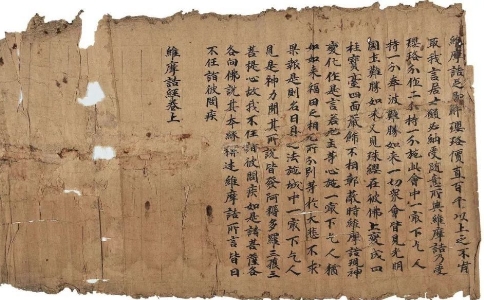 維摩詰足即解瓔珞價直百千以上之不肯
取我言居士願必納受隨意所與維摩詰乃受
瓔珞分作二分持一分施此會中一最下乞人
持一分奉彼難勝如來一切眾會皆見光明
國土難勝如來又見珠瓔在彼佛上變成四
柱寶臺四面嚴飾不相鄣蔽時維摩詰現神
變化作是言若施主等心施一最下乞人猶
如如來福田之相无所分別等於大悲不求
果報是則名曰具足法施城中一最下乞人
見是神力聞其所說皆發阿耨多羅三藐三
菩提心故我不任詣彼問疾如是諸菩薩各
各向佛說其本緣稱述維摩詰所言皆曰
不任詣彼問疾
維摩詰經卷上